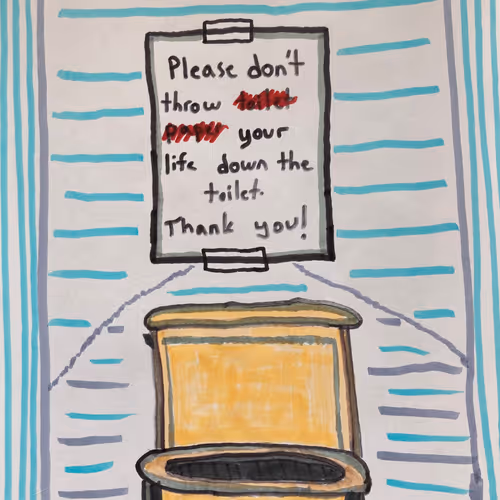 Please don't
throw toilet
paper your
life down the
toilet.
Thank you!